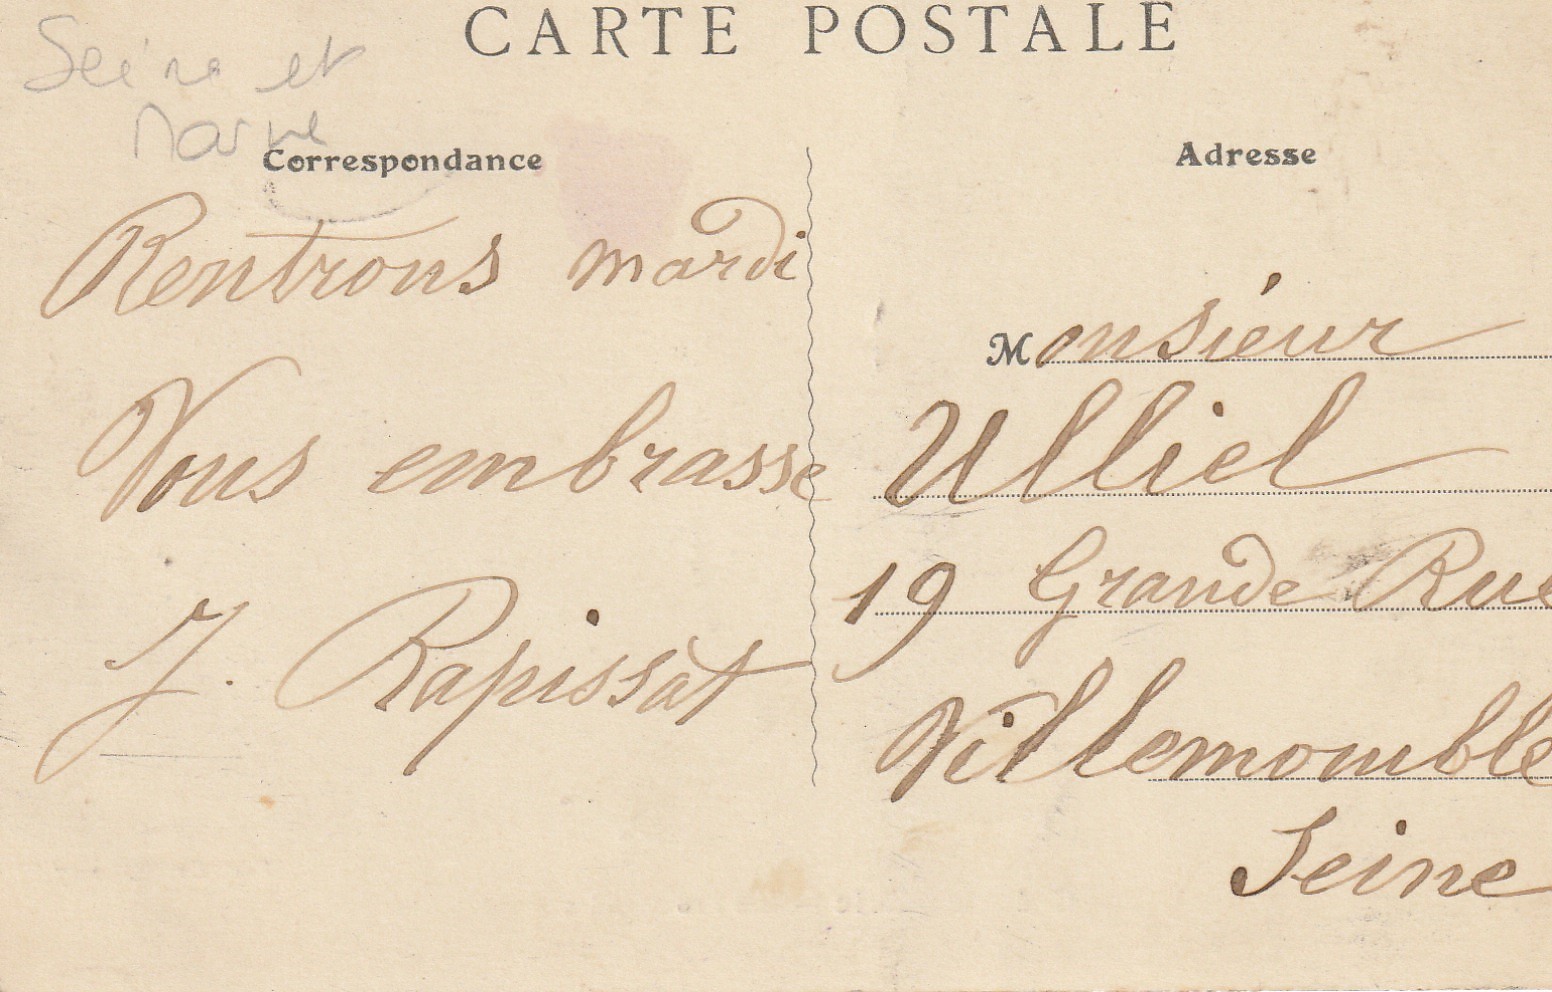 CARTE POSTALE
Seine et
Marne
Correspondance
Rentrons mardi
Vous embrasse
J. Rapissat
Adresse
Monsieur
Ulliel
19 Grande Rue
Villemomble
Seine